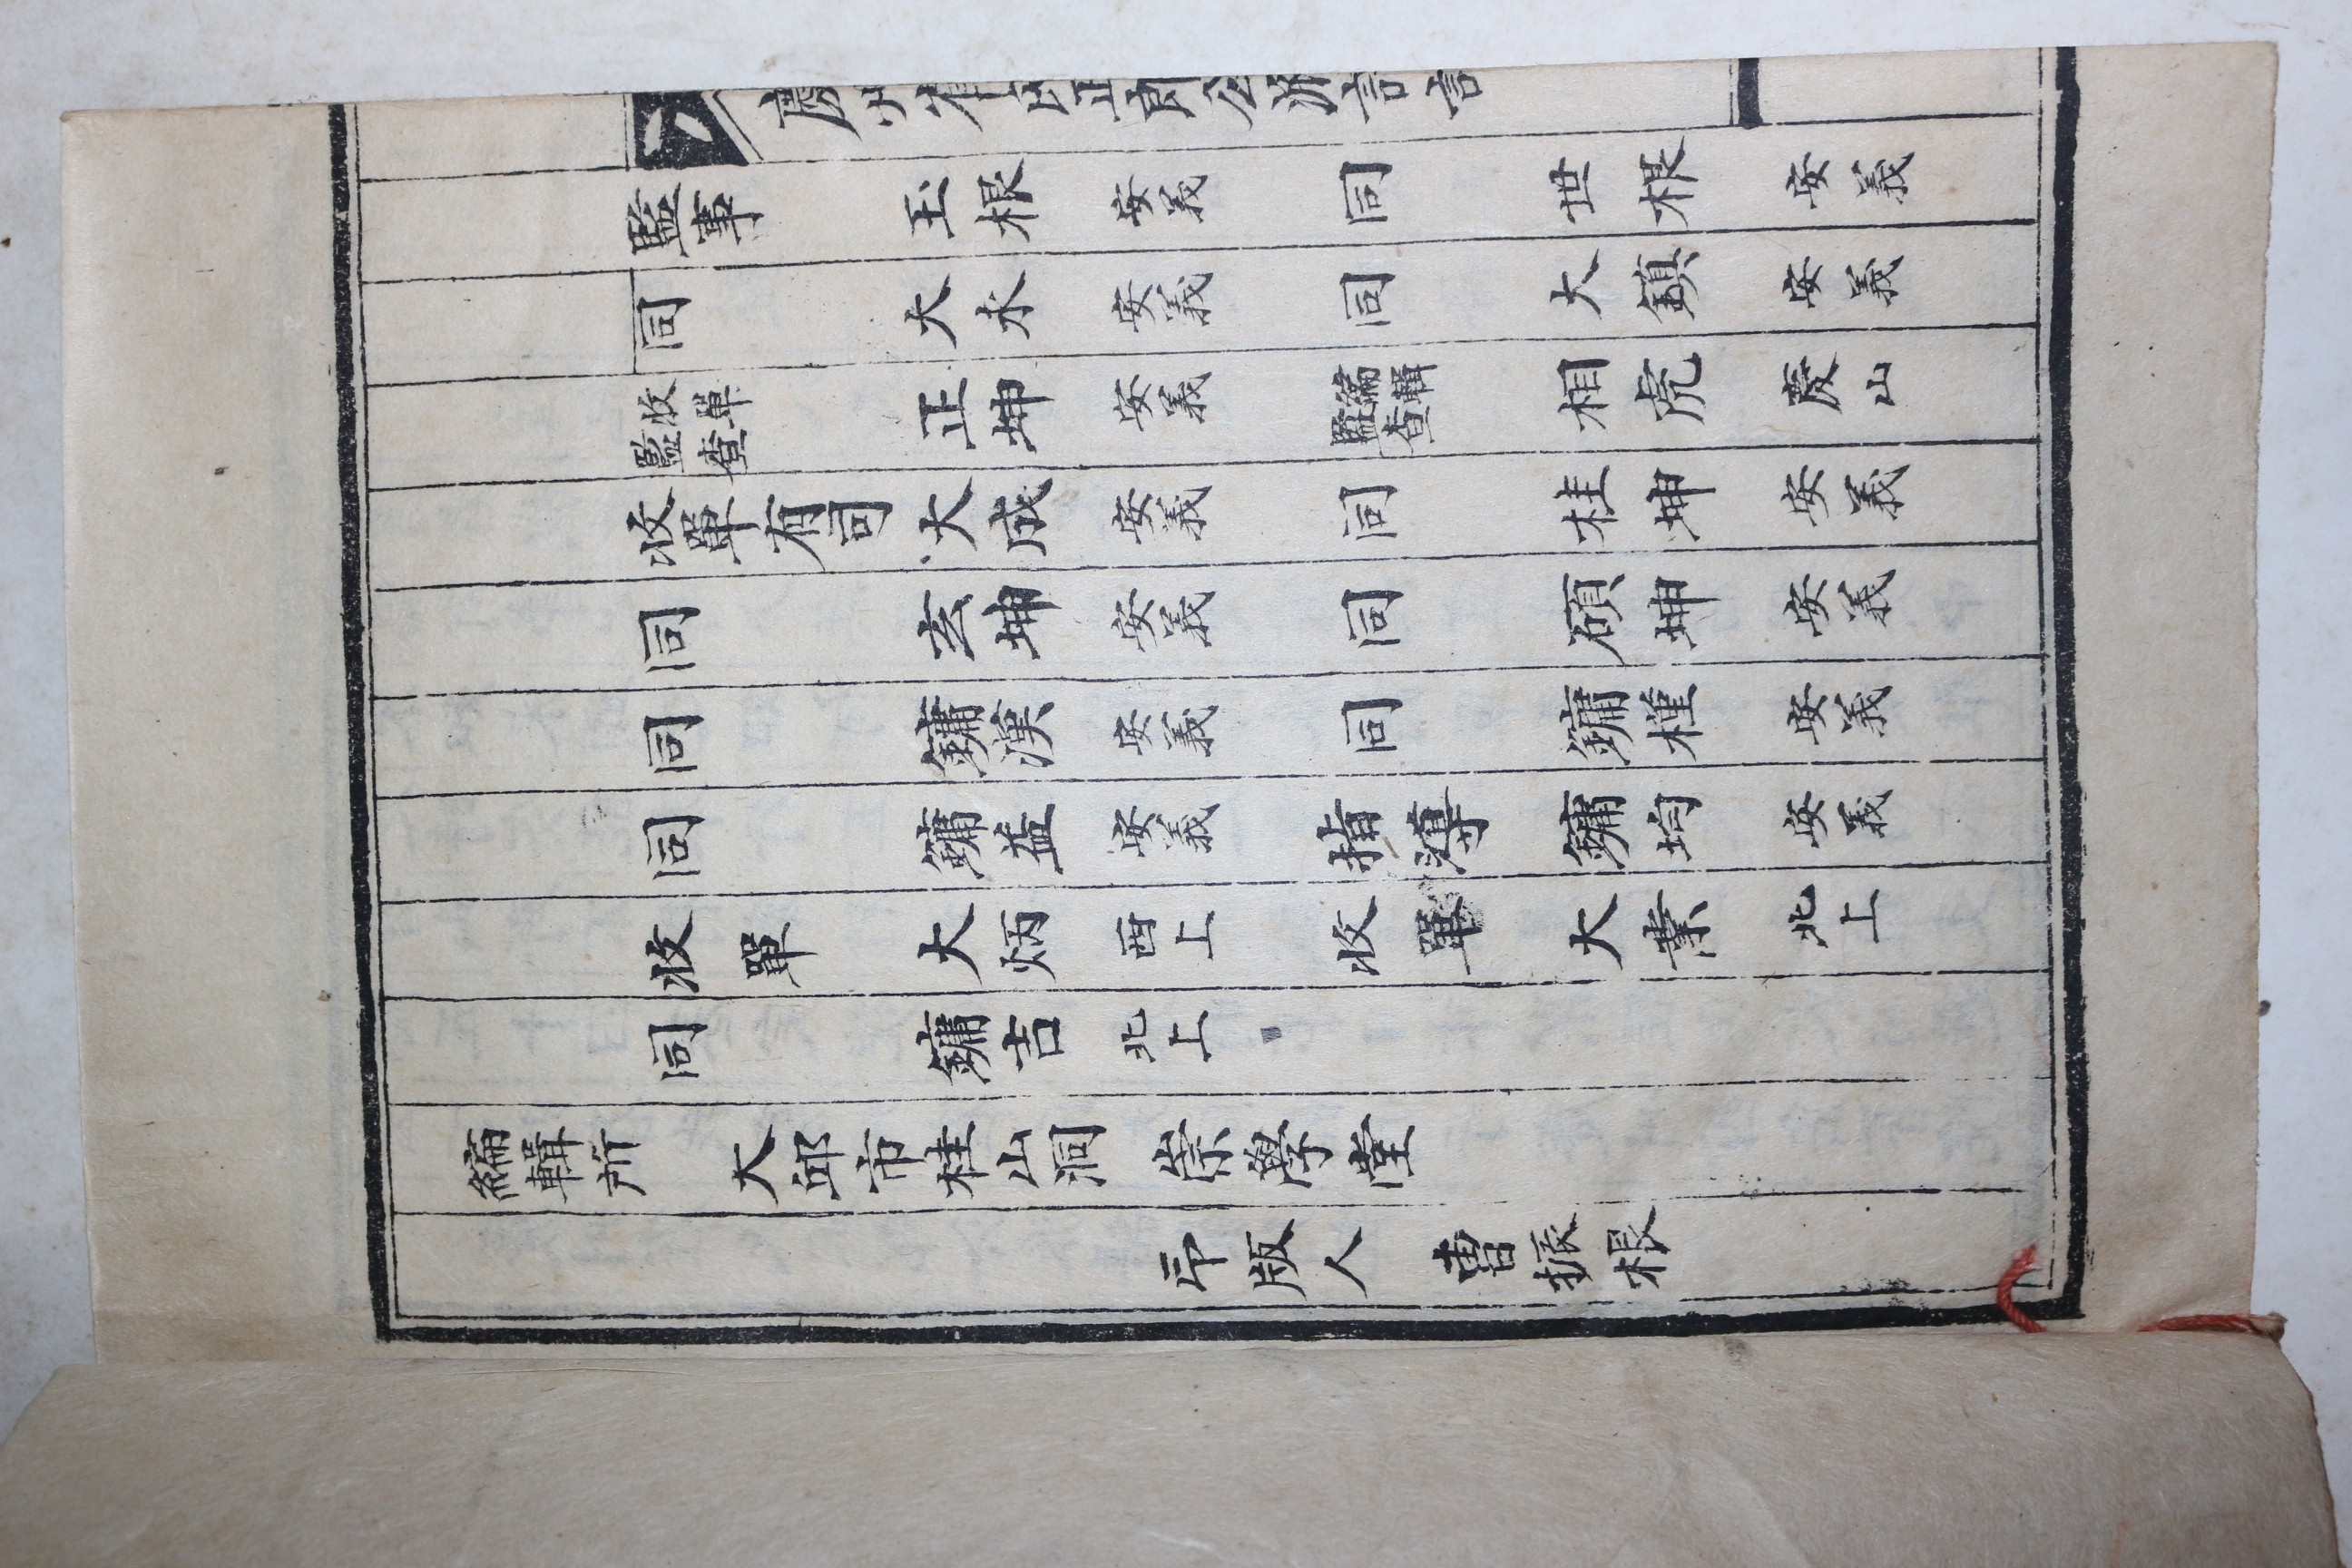 監事 玉根 安義 同 世根 安義
同 大永 安義 同 大鎮 安義
收單監查 正坤 安義 編輯監查 相虎 慶山
收單有司 大成 安義 同 桂坤 安義
同 玄坤 安義 同 碩坤 安義
同 鏞漢 安義 同 鏞槿 安義
同 鏞益 安義 指導 鏞均 安義
收單 大炳 西上 收單 大業 北上
同 鏞吉 北上
編輯所 大邱市桂山洞 崇學堂
印版人 曺振根